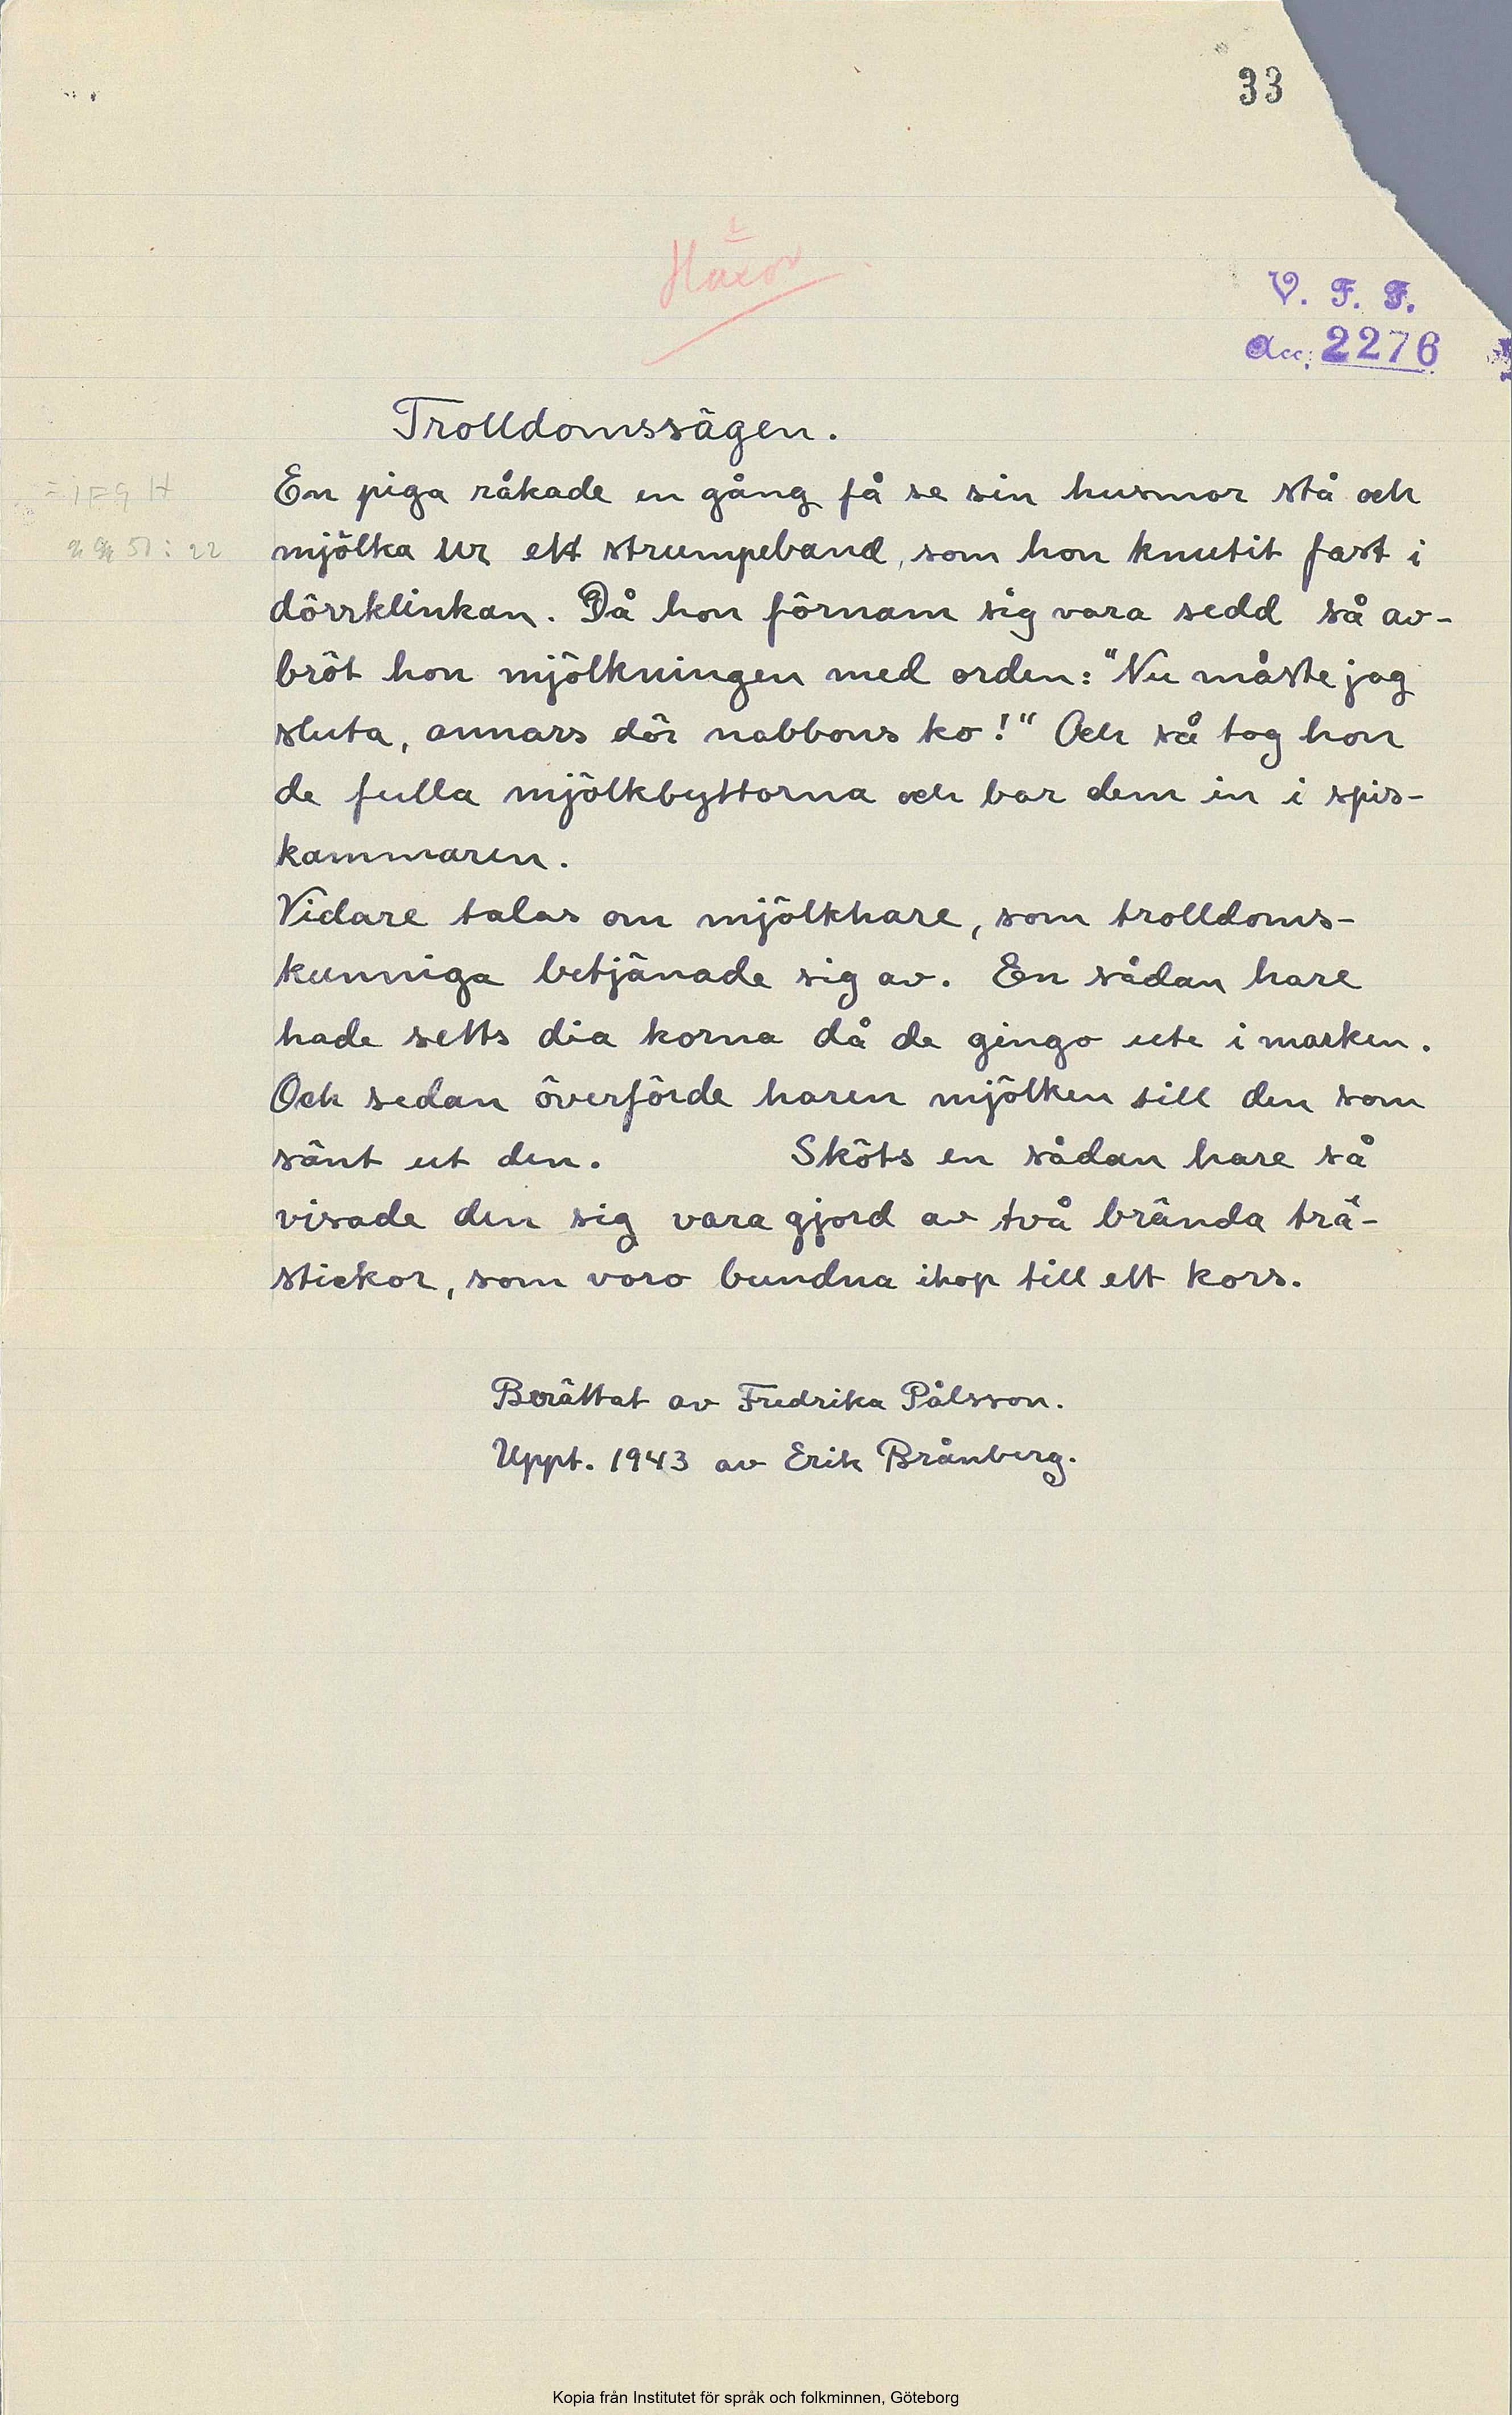 33
Häxor
V. F. F.
Acc. 2276
Trolldomssägen.
En piga råkade en gång få se sin husmor stå och
mjölka ur ett strumpeband, som hon knutit fast i
dörrklinkan. Då hon förnam sig vara sedd så av-
bröt hon mjölkningen med orden: "Nu måste jag
sluta, annars dör nabbons ko!" Och så tog hon
de fulla mjölkbyttorna och bar dem in i spis-
kammaren.
Vidare talas om mjölkhare, som trolldoms-
kunniga betjänade sig av. En sådan hare
hade setts dia korna då de gingo ute i marken.
Och sedan överförde haren mjölken till den som
sänt ut den. Sköts en sådan hare så
visade den sig vara gjord av två brända trä-
stickor, som voro bundna ihop till ett kors.
Berättat av Fredrika Pålsson.
Uppt. 1943 av Erik Brånberg.
Kopia från Institutet för språk och folkminnen, Göteborg